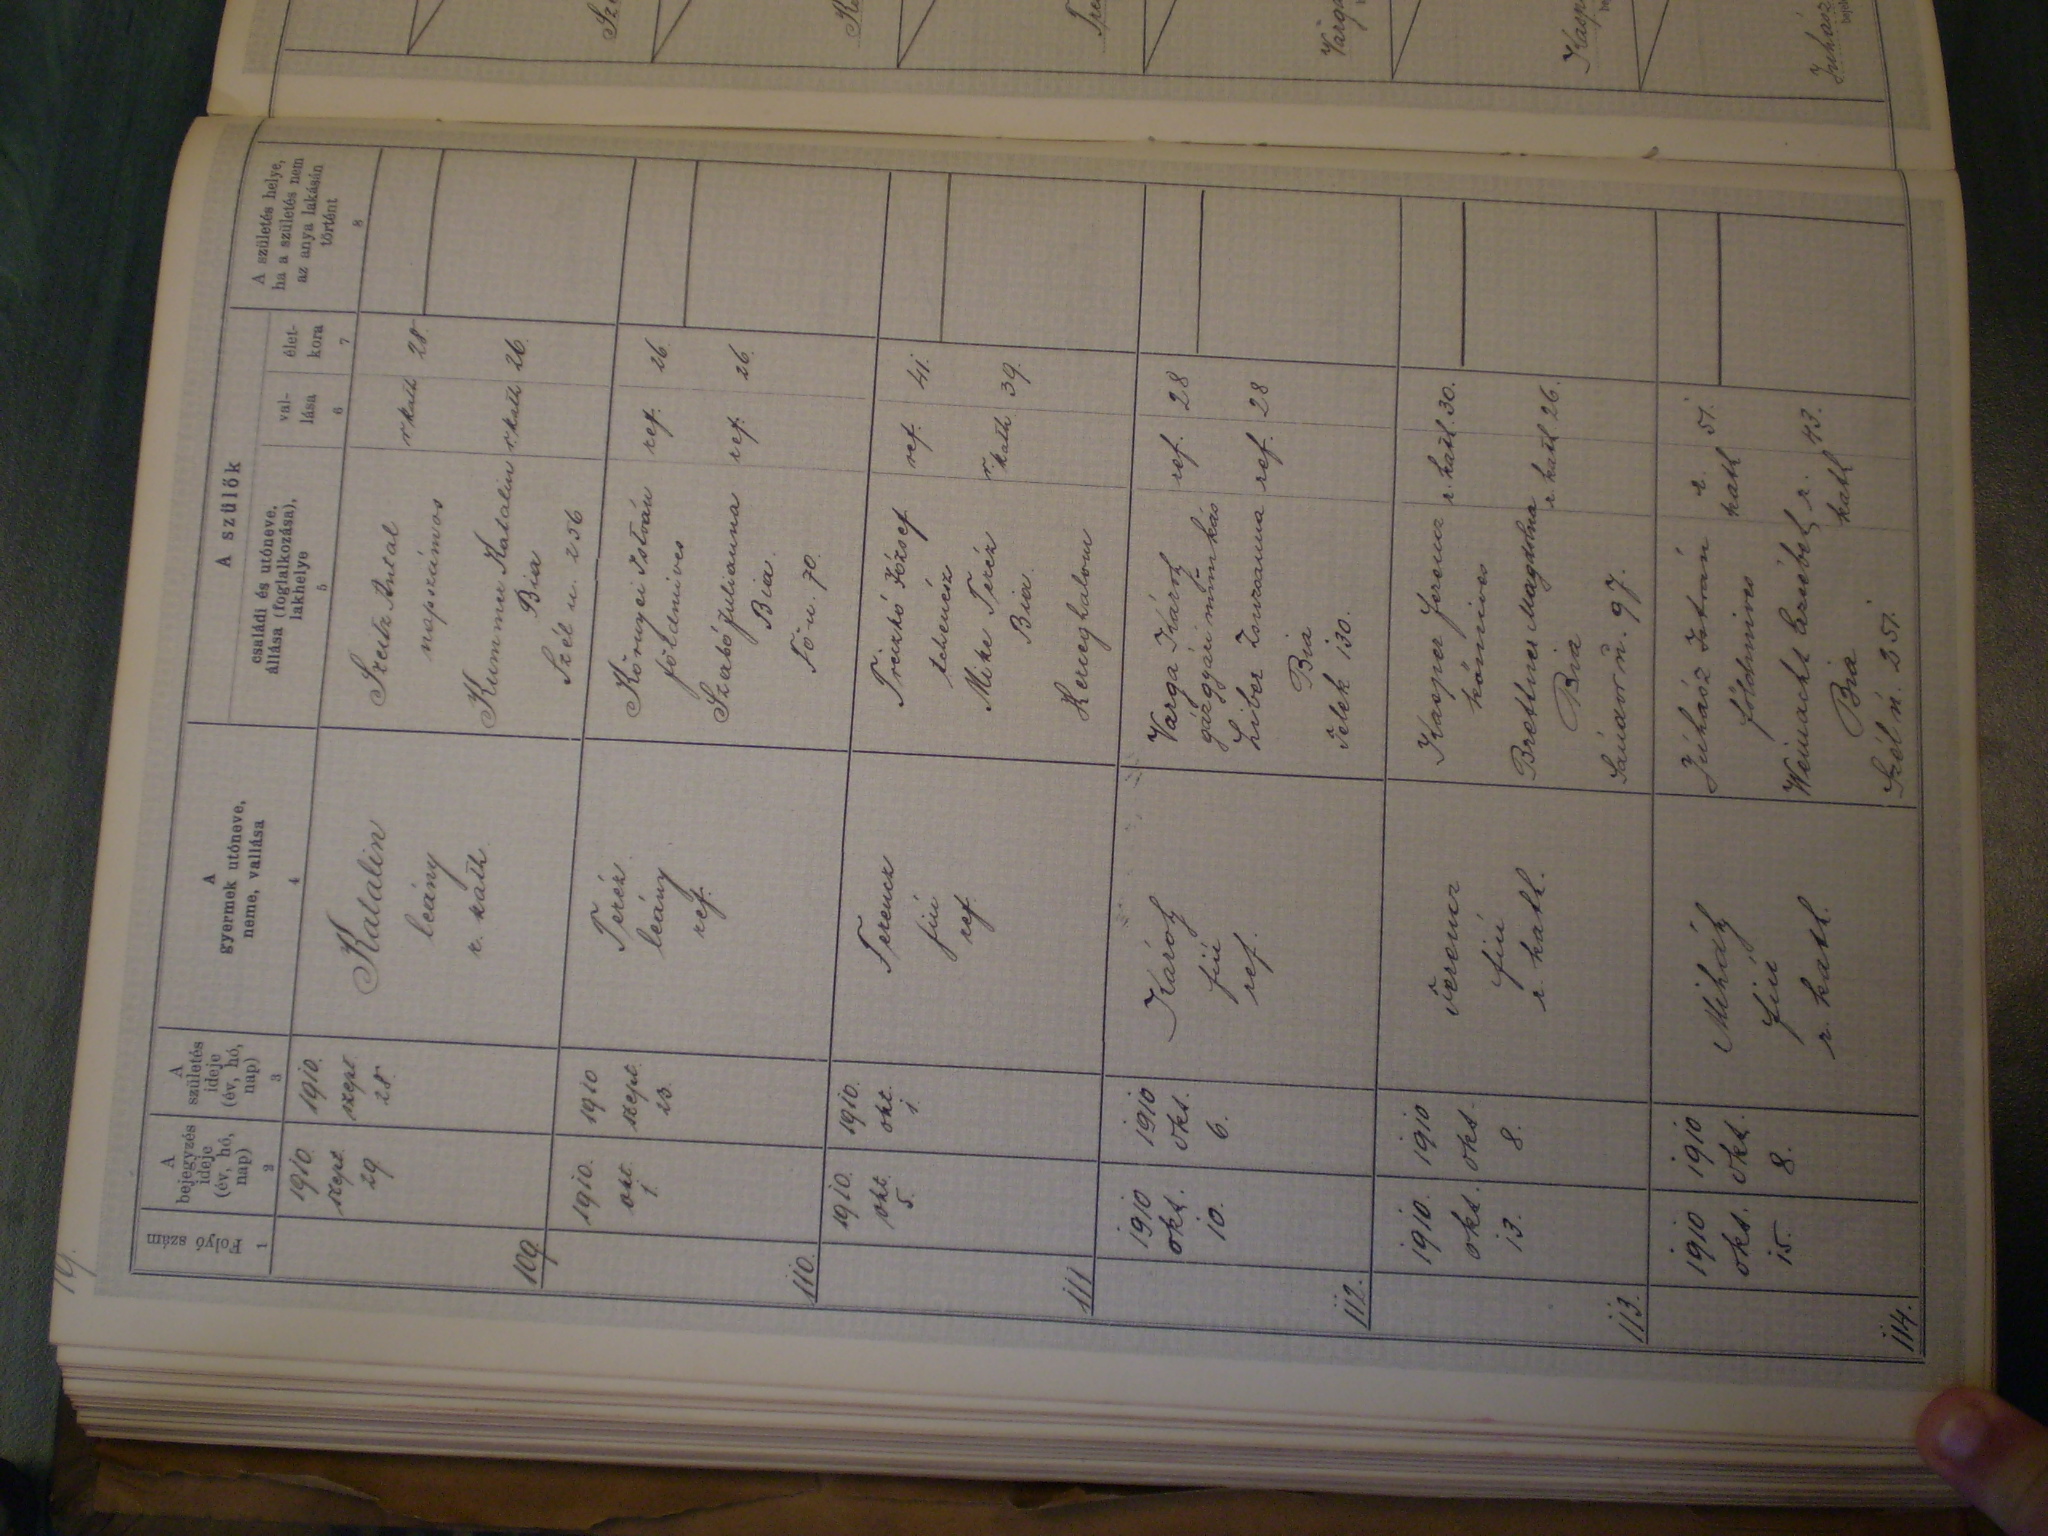 19.
Folyó szám
1
A
bejegyzés
ideje
(év, hó,
nap)
2
A
születés
ideje
(év, hó,
nap)
3
A
gyermek utóneve,
neme, vallása
4
A szülők
családi és utóneve,
állása (foglalkozása),
lakhelye
5
val-
lása
6
élet-
kora
7
A születés helye,
ha a születés nem
az anya lakásán
történt
8
109.
1910.
szept.
29
1910.
szept.
28.
Katalin
leány
r. kath.
Antal
napszámos
Katalin
Bia
Szél u. 256
r kath 28.
r kath 26.
110.
1910.
okt.
1.
1910
szept.
23.
Teréz
leány
ref.
Könyei István
földmives
Szabó Julianna
Bia
Fő u. 70.
ref. 26.
ref. 26.
111
1910.
okt.
5.
1910.
okt.
1.
Ferencz
fiu
ref.
József
tehenész
Mike Teréz
Bia
Herceghalom
ref. 41.
r. kath 39.
112.
1910
okt.
10.
1910
okt.
6.
Károly
fiú
ref.
Varga Károly
gázgyári munkás
Liber Zsuzsanna
Bia
telek 130.
ref. 28
ref. 28
113.
1910.
okt.
13.
1910
okt.
8.
Ferenc
fiú
r. kath.
Kasper Ferenc
kőmives
Brettner Magdolna
Bia
Sándor u. 97.
r. kath. 30.
r. kath. 26.
114.
1910
okt.
15.
1910
okt.
8.
Mihály
fiú
r. kath.
Juhász István
földmives
Erzsébet
Bia
Szél u. 251.
r. kath 51.
r. kath 43.
Varga
Kasp
Juhász